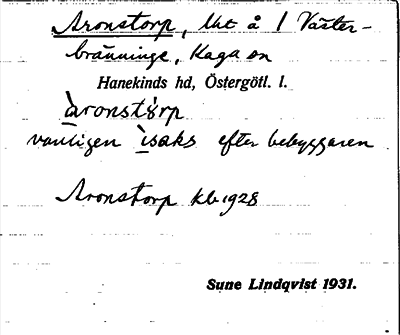 Aronstorp, lht å 1 Väster-
bränninge, Kaga sn
Hanekinds hd, Östergötl. l.
àronstårp
vanligen ìsaks efter bebyggaren
Aronstorp kb 1928
Sune Lindqvist 1931.